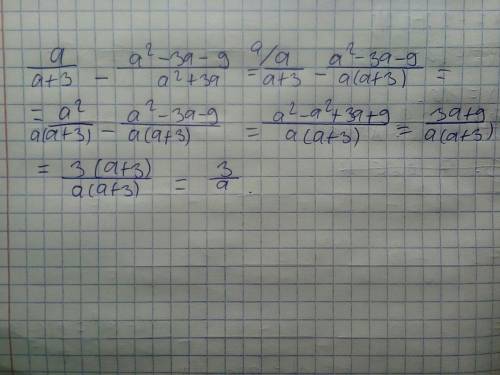 a/(a+3) − (a²−3a−9)/(a²+3a) = ᵃ⁄a/(a+3) − (a²−3a−9)/(a(a+3)) =
= a²/(a(a+3)) − (a²−3a−9)/(a(a+3)) = (a²−a²+3a+9)/(a(a+3)) = (3a+9)/(a(a+3))
= 3(a+3)/(a(a+3)) = 3/a.